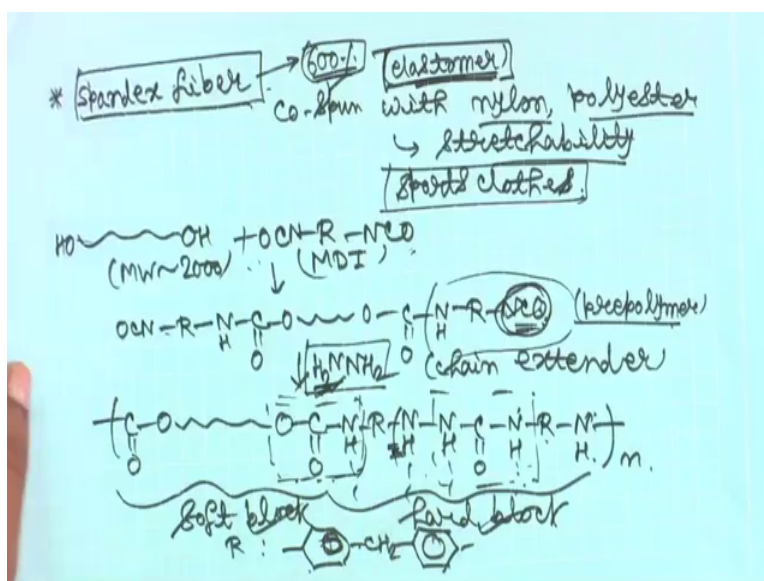 * Spandex fiber → 600% (elastomer)
Co-Spun with nylon, polyester
↳ stretchability
Sports clothes.
HO~~~~OH + OCN-R-NCO
(MW~2000) (MDI)
OCN-R-N-C-O~~~O-C-N-R-NCO (prepolymer)
H O O H
H₂NNH₂ (chain extender
( C-O~~~~O-C-N-R-N-N-C-N-R-N )n.
O O H H H O H H.
Soft block hard block
R : -CH₂-